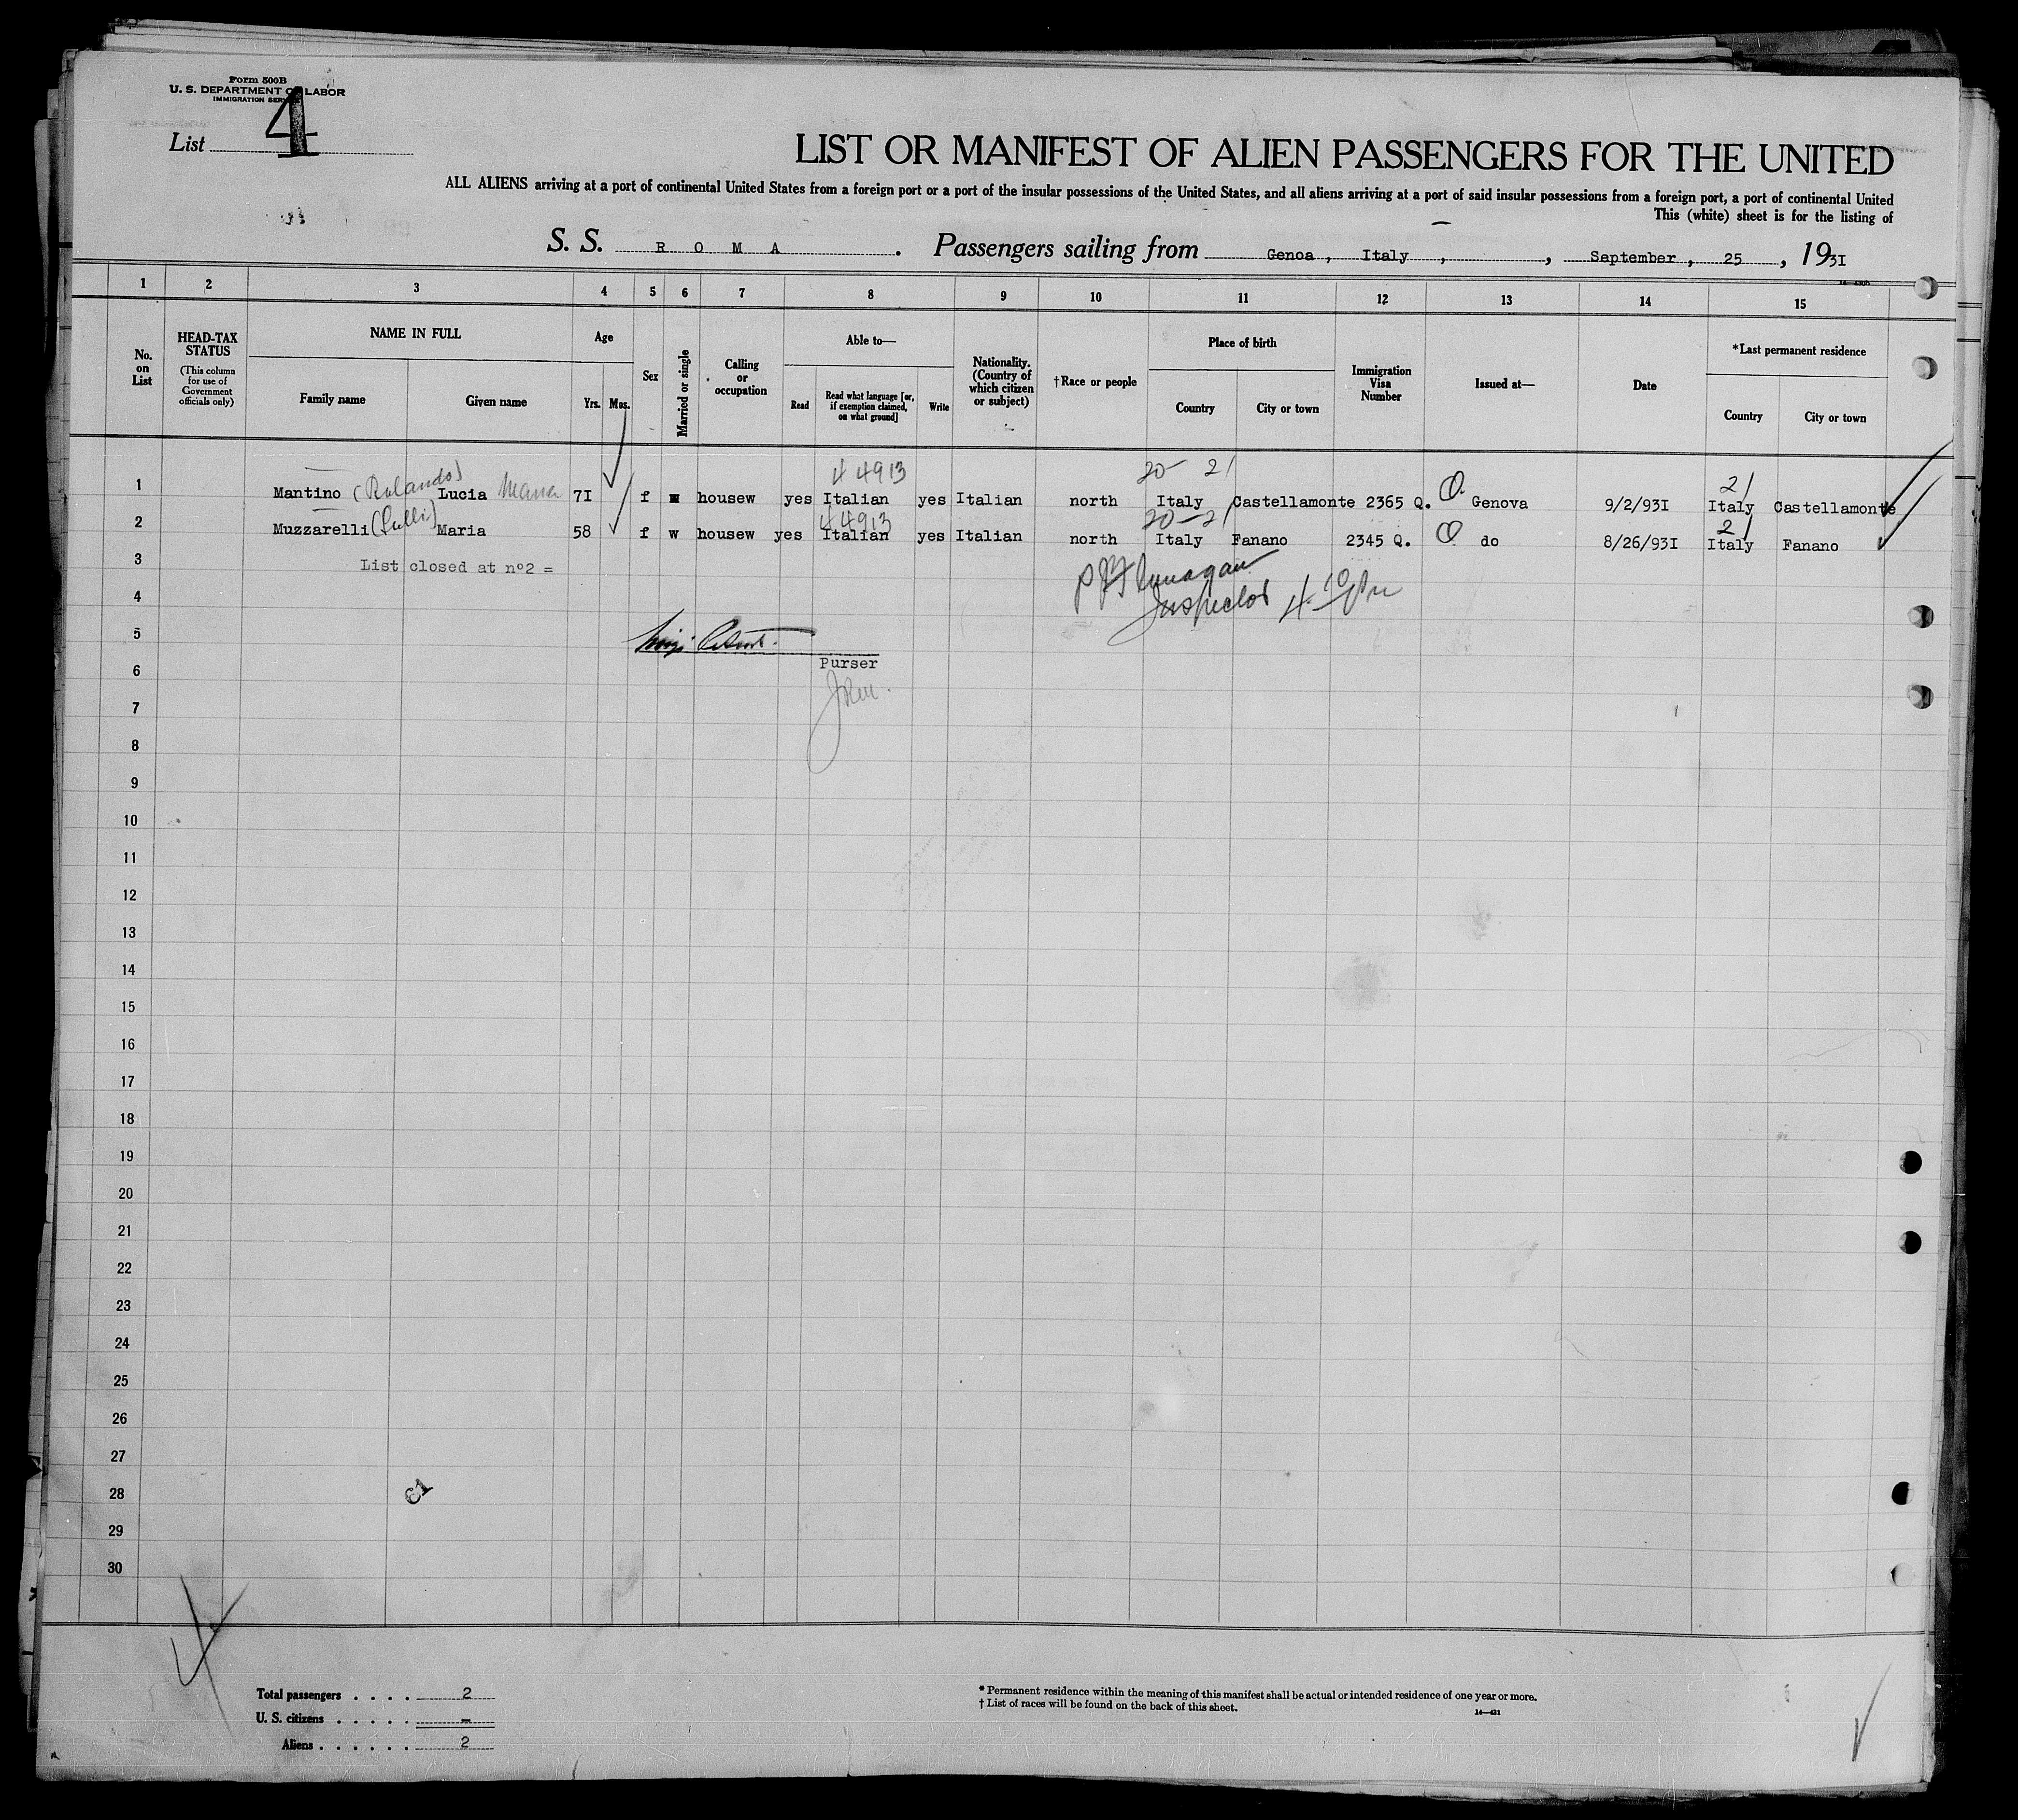 Form 500B
U. S. DEPARTMENT OF LABOR
IMMIGRATION SERVICE
List 4
LIST OR MANIFEST OF ALIEN PASSENGERS FOR THE UNITED
ALL ALIENS arriving at a port of continental United States from a foreign port or a port of the insular possessions of the United States, and all aliens arriving at a port of said insular possessions from a foreign port, a port of continental United
This (white) sheet is for the listing of
S. S. R O M A . Passengers sailing from Genoa, Italy , , September, 25 , 1931
1 2 3 4 5 6 7 8 9 10 11 12 13 14 15
No. on List
HEAD-TAX STATUS
(This column for use of Government officials only)
NAME IN FULL
Family name
Given name
Age
Yrs. Mos.
Sex
Married or single
Calling or occupation
Able to—
Read
Read what language [or, if exemption claimed, on what ground]
Write
Nationality. (Country of which citizen or subject)
†Race or people
Place of birth
Country
City or town
Immigration Visa Number
Issued at—
Date
*Last permanent residence
Country
City or town
4 4913 20- 21 21
1 Mantino (Rolando) Lucia Maria 7I f housew yes Italian yes Italian north Italy Castellamonte 2365 Q. Genova 9/2/93I Italy Castellamonte
4 4913 20-21 21
2 Muzzarelli Maria 58 f w housew yes Italian yes Italian north Italy Fanano 2345 Q. do 8/26/93I Italy Fanano
3 List closed at nº2 =
Inspector
4
5
Purser
6
7
8
9
10
11
12
13
14
15
16
17
18
19
20
21
22
23
24
25
26
27
28
29
30
Total passengers . . . . 2
U. S. citizens . . . . . –
Aliens . . . . . . 2
* Permanent residence within the meaning of this manifest shall be actual or intended residence of one year or more.
† List of races will be found on the back of this sheet.
14—431